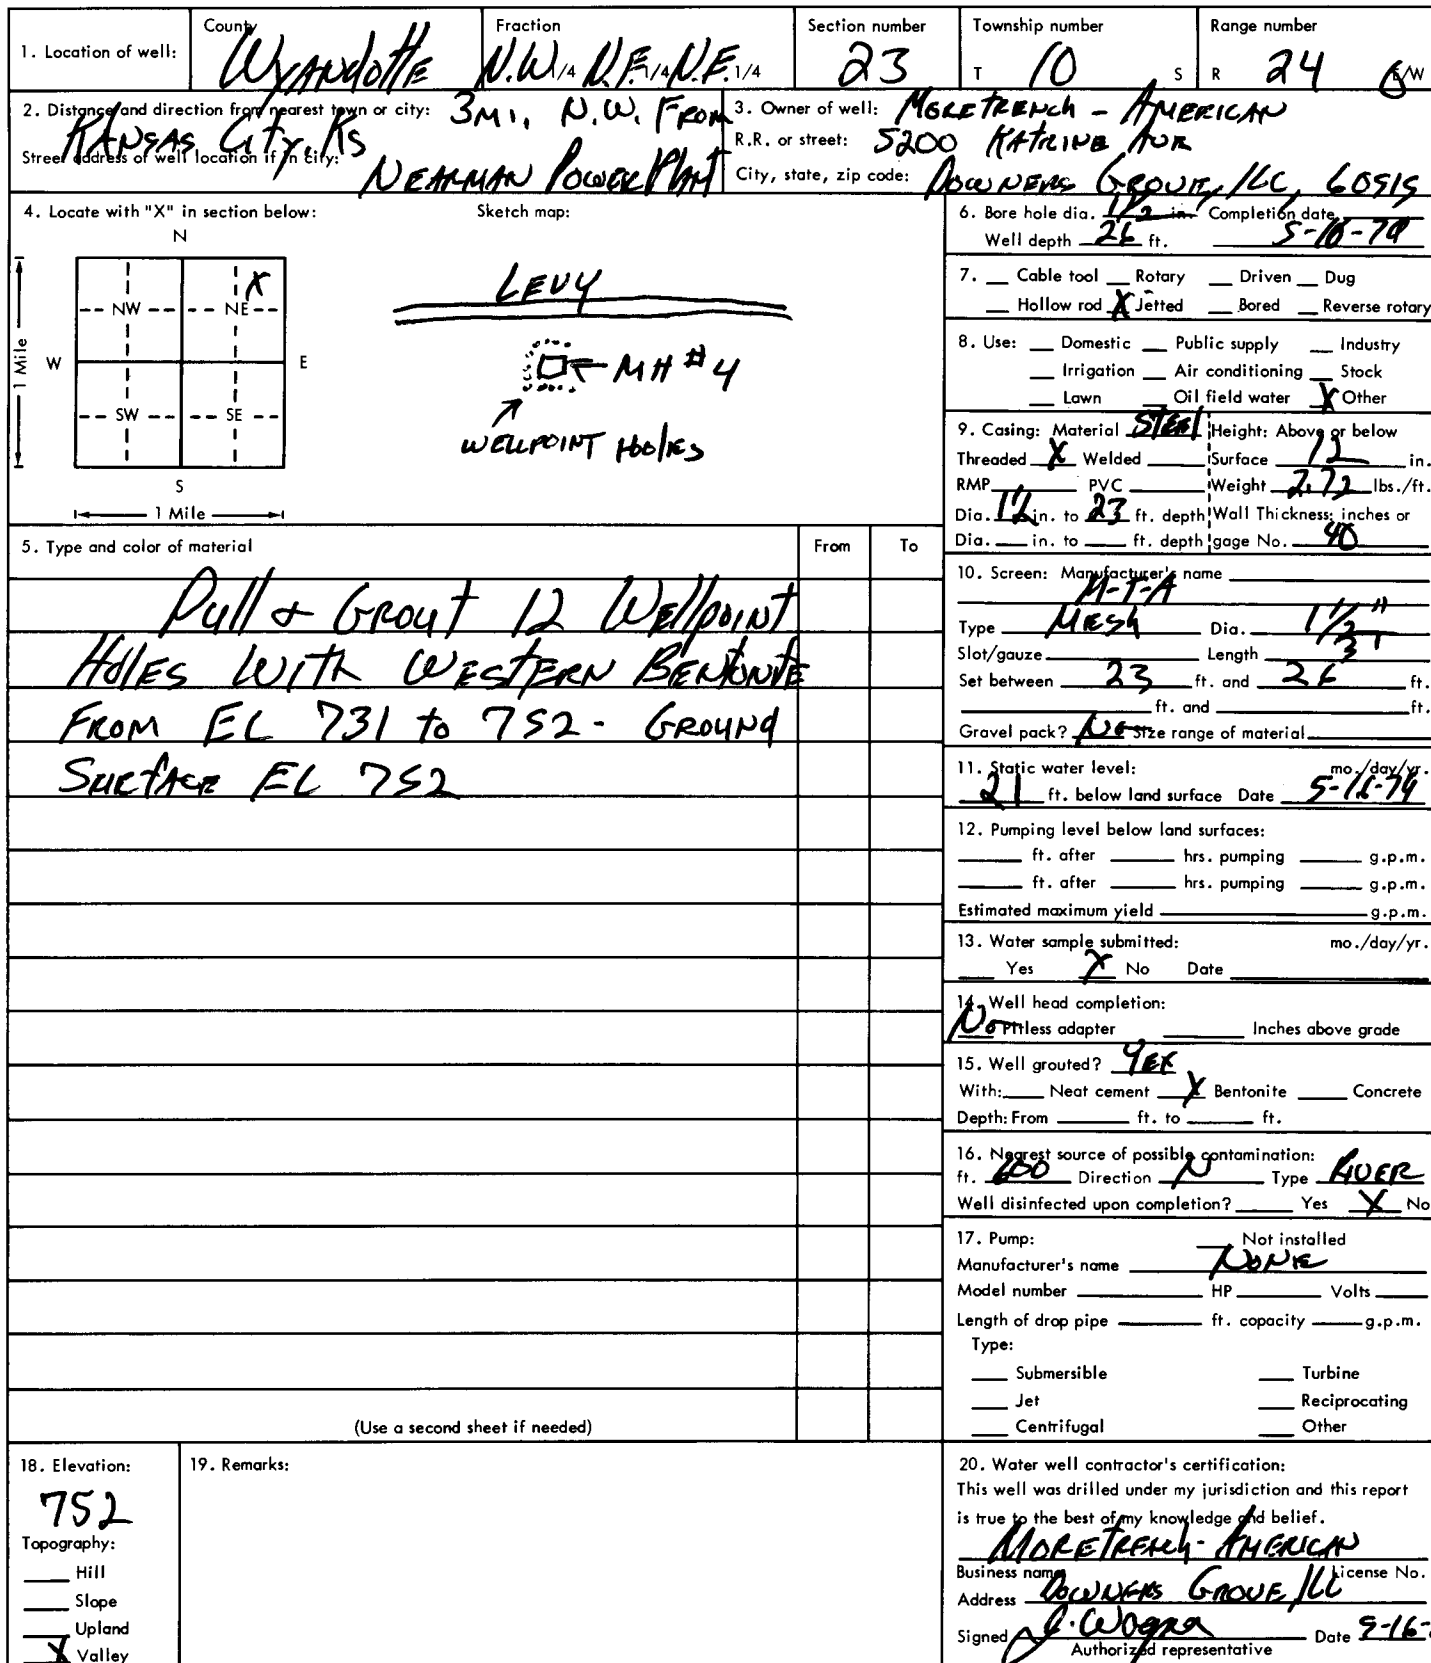 1. Location of well: County Wyandotte Fraction N.W. 1/4 N.E. 1/4 N.E. 1/4 Section number 23 Township number T 10 S Range number R 24 E/W
2. Distance and direction from nearest town or city: 3 MI. N.W. FROM
KANSAS City, KS
Street address of well location if in city:
NEARMAN POWER PlANT
3. Owner of well: MORETRENCH - AMERICAN
R.R. or street: 5200 KATRINE AVE
City, state, zip code: DOWNERS GROVE, ILL, 60515
4. Locate with "X" in section below:
Sketch map:
N
NW NE X
W E
SW SE
S
1 Mile
1 Mile
LEVY
MH #4
WELLPOINT HOLES
5. Type and color of material From To
Pull & Grout 12 Wellpoint
HOLES WITH WESTERN BENTONITE
FROM EL 731 to 752 - GROUND
SURFACE EL 752
(Use a second sheet if needed)
6. Bore hole dia. in. Completion date
Well depth 26 ft. 5-16-79
7. Cable tool Rotary Driven Dug
Hollow rod X Jetted Bored Reverse rotary
8. Use: Domestic Public supply Industry
Irrigation Air conditioning Stock
Lawn Oil field water X Other
9. Casing: Material STEEL Height: Above or below
Threaded X Welded Surface 12 in.
RMP PVC Weight 2.72 lbs./ft.
Dia. 1½ in. to 23 ft. depth Wall Thickness: inches or
Dia. in. to ft. depth gage No. 40
10. Screen: Manufacturer's name
M-T-A
Type MESH Dia. 1 1/2"
Slot/gauze Length 3'
Set between 23 ft. and 26 ft.
ft. and ft.
Gravel pack? No Size range of material
11. Static water level: mo./day/yr.
21 ft. below land surface Date 5-16-79
12. Pumping level below land surfaces:
ft. after hrs. pumping g.p.m.
ft. after hrs. pumping g.p.m.
Estimated maximum yield g.p.m.
13. Water sample submitted: mo./day/yr.
Yes X No Date
14. Well head completion:
No Pitless adapter Inches above grade
15. Well grouted? YES
With: Neat cement X Bentonite Concrete
Depth: From ft. to ft.
16. Nearest source of possible contamination:
ft. 600 Direction N Type RIVER
Well disinfected upon completion? Yes X No
17. Pump: Not installed
Manufacturer's name NONE
Model number HP Volts
Length of drop pipe ft. capacity g.p.m.
Type:
Submersible Turbine
Jet Reciprocating
Centrifugal Other
18. Elevation:
752
Topography:
Hill
Slope
Upland
X Valley
19. Remarks:
20. Water well contractor's certification:
This well was drilled under my jurisdiction and this report
is true to the best of my knowledge and belief.
MORETRENCH - AMERICAN
Business name License No.
Address DOWNERS GROVE, ILL
Signed Date 5-16-
Authorized representative